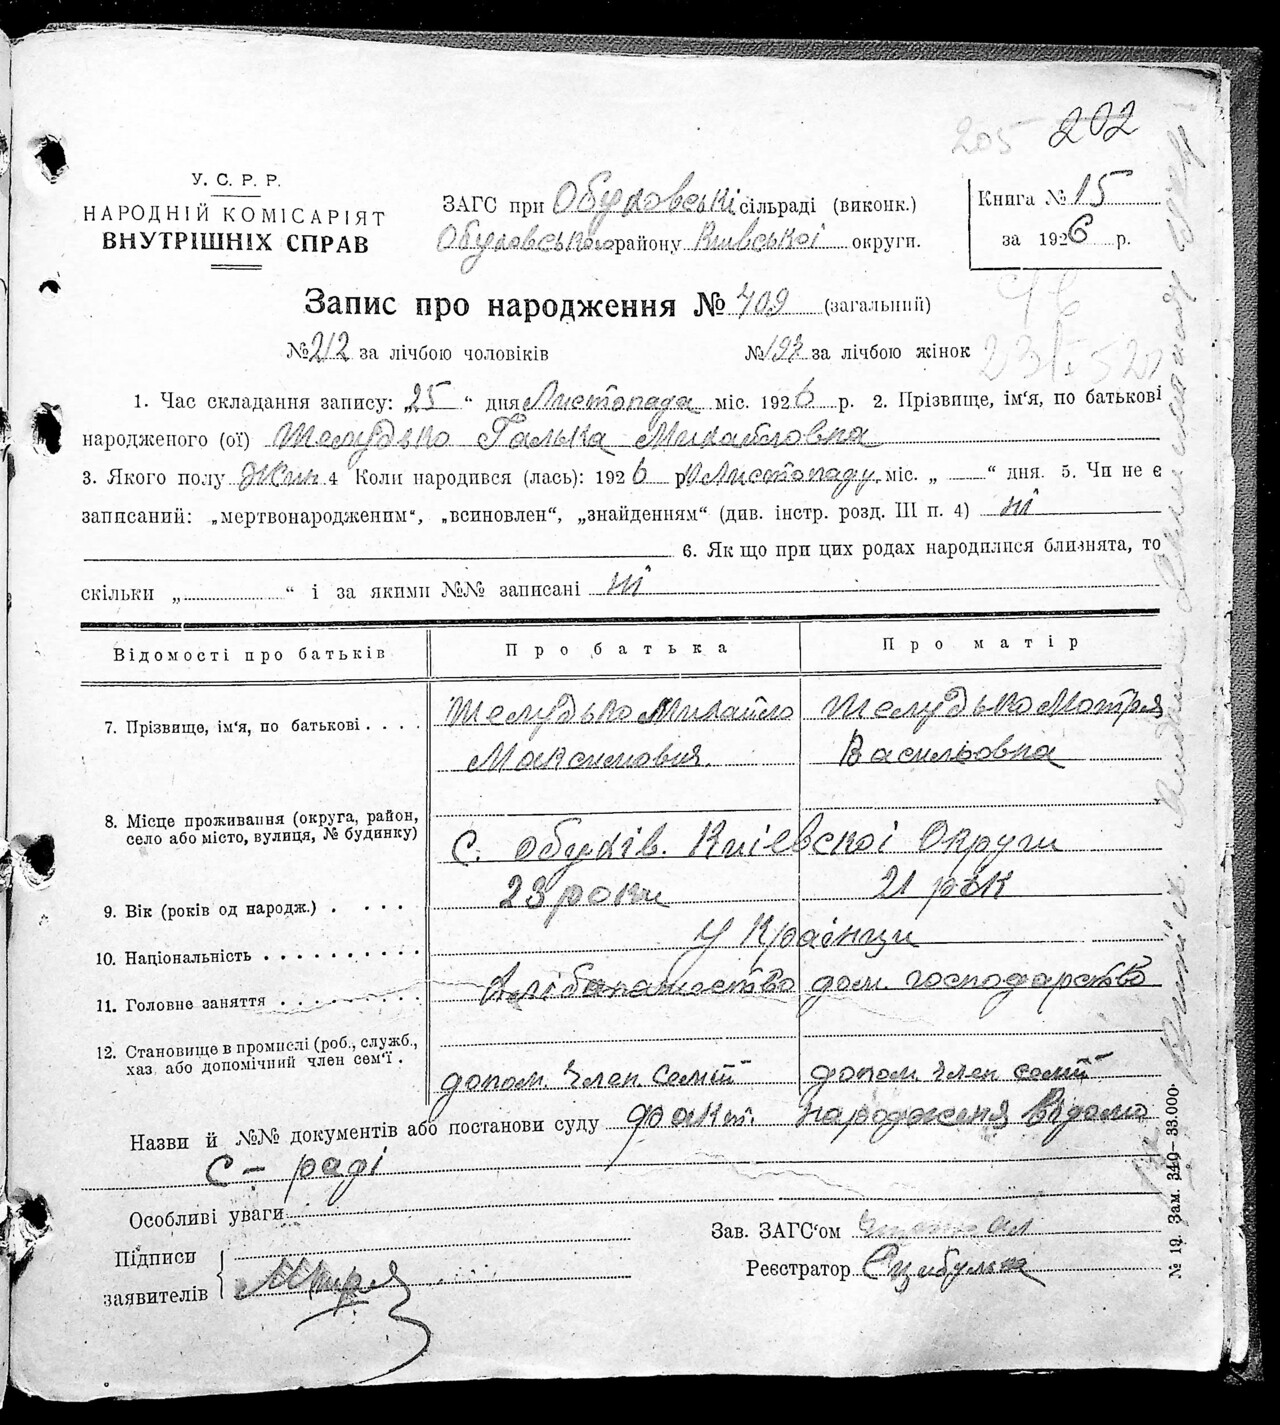 205 202
У. С. Р. Р.
НАРОДНІЙ КОМІСАРІЯТ
ВНУТРІШНІХ СПРАВ
ЗАГС при Обуховські сільраді (виконк.)
Обуховського району Київської округи.
Книга № 15
за 1926 р.
Запис про народження № 409 (загальний)
№ 212 за лічбою чоловіків № 197 за лічбою жінок
1. Час складання запису: „25“ дня Листопада міс. 1926 р. 2. Прізвище, ім'я, по батькові
народженого (ої) Шелудько Галька Михайловна
3. Якого полу Жін 4 Коли народився (лась): 1926 р Листопаду міс. „ “ дня. 5. Чи не є
записаний: „мертвонародженим“, „всиновлен“, „знайденням“ (див. інстр. розд. III п. 4) ні
6. Якщо при цих родах народилися близнята, то
скільки „ “ і за якими №№ записані ні
Відомості про батьків Про батька Про матір
7. Прізвище, ім'я, по батькові Шелудько Михайло Шелудько Мотря
Максимович Васильовна
8. Місце проживання (округа, район,
село або місто, вулиця, № будинку) С. Обухів. Киівскоі Округи
9. Вік (років од народж.) 23 роки 21 рок
10. Національність Украінци
11. Головне заняття Хлібопашество дом. господарство
12. Становище в промислі (роб., служб.,
хаз. або допомічний член сем'ї допом. член семіі допом. член семіі
Назви й №№ документів або постанови суду факт. народженя відомо
С-раді
Особливі уваги
Підписи
заявителів
Зав. ЗАГС'ом
Реєстратор
№ 19. Зам. 340—33.000.